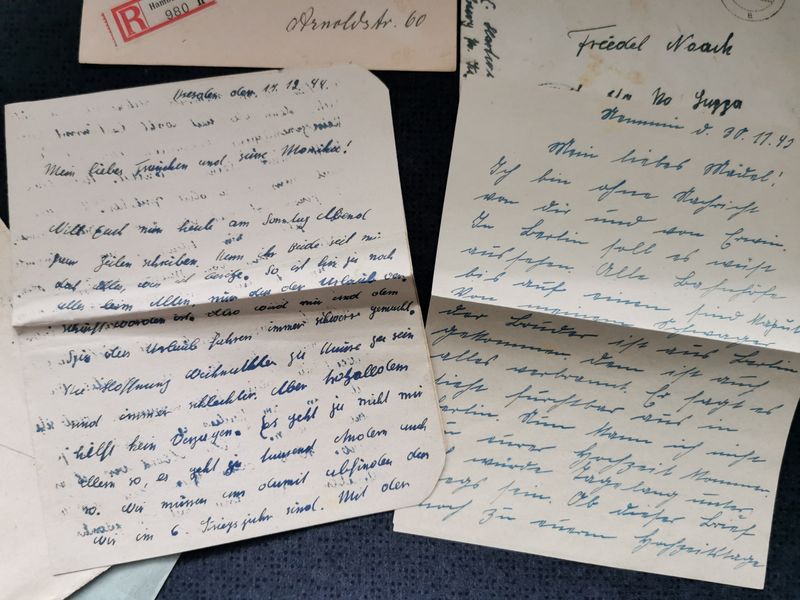 R
980
Arnoldstr. 60
Dresden den 17.12.44.
Mein liebes Frauchen und süsse Monika!
Will Euch nun heute am Sonntag Abend
paar Zeilen schreiben. Denn ihr Beide seid mir
das alles, was ich besitze. So ist hier ja noch
alles beim Alten, nur das der Urlaub
worden ist. Also wird mir und dem
das Urlaub fahren immer schwerer gemacht.
Die Hoffnung Weihnachten zu Hause zu sein
sind immer schlechter. Aber trotzalledem
hilft kein Verzagen. Es geht ja nicht mir
allein so, es geht ja tausend Andern auch
so. Wir müssen uns damit abfinden das
Wir im 6. Kriegsjahr sind. Mit der
Friedel Noack
d. 30.11.43
Mein liebes Mädel!
Ich bin ohne Nachricht
von dir und von Erwin.
In Berlin soll es wüst
aussehen. Alle Bahnhöfe
bis auf einen sind kaputt
Von meinem Schwager
der Bruder ist aus Berlin
gekommen dem ist auch
alles verbrannt. Er sagt es
sieht furchtbar aus in
Berlin. Nun kann ich nicht
zu eurer Hochzeit kommen.
würde tagelang unter
wegs sein. Ob dieser Brief
noch zu eurem Hochzeitstage